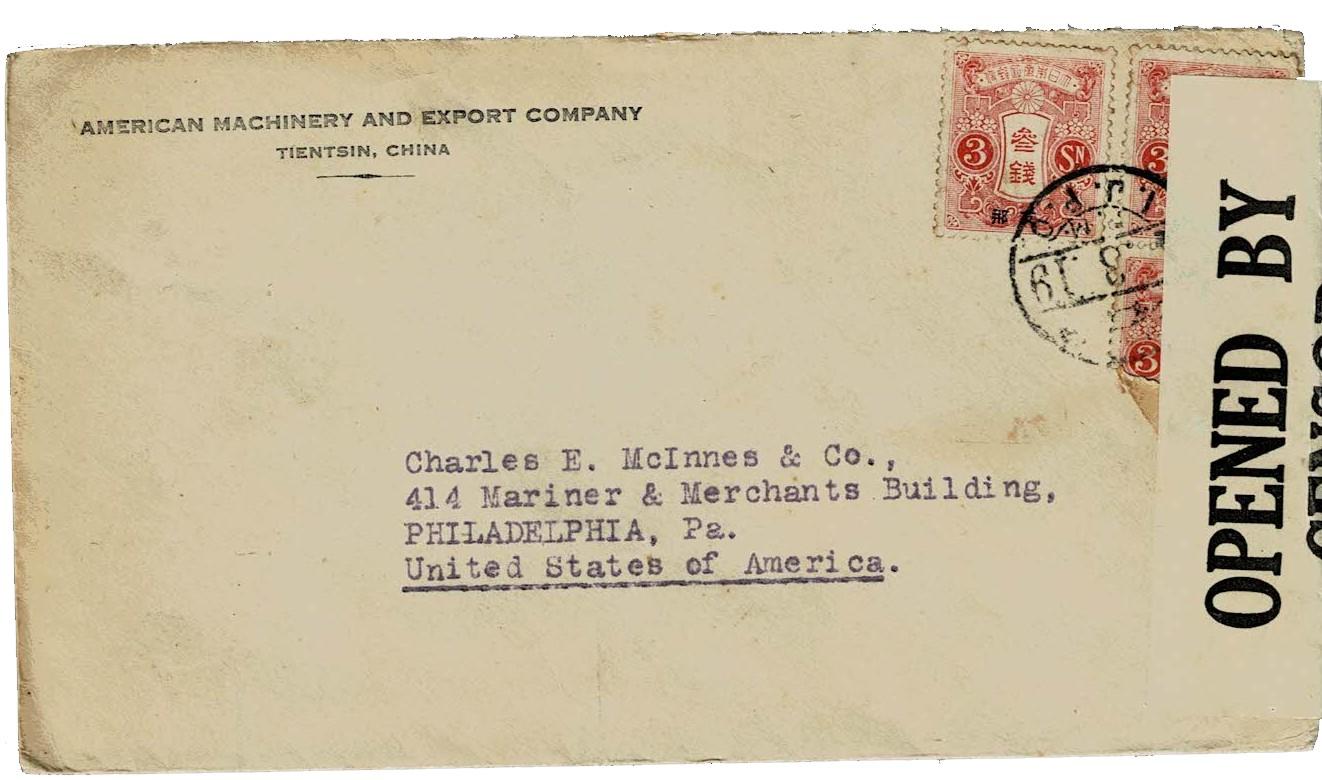 AMERICAN MACHINERY AND EXPORT COMPANY
TIENTSIN, CHINA
3 叁錢 SN
3
3
I.J.P.
8 19
Charles E. McInnes & Co.,
414 Mariner & Merchants Building,
PHILADELPHIA, Pa.
United States of America.
OPENED BY